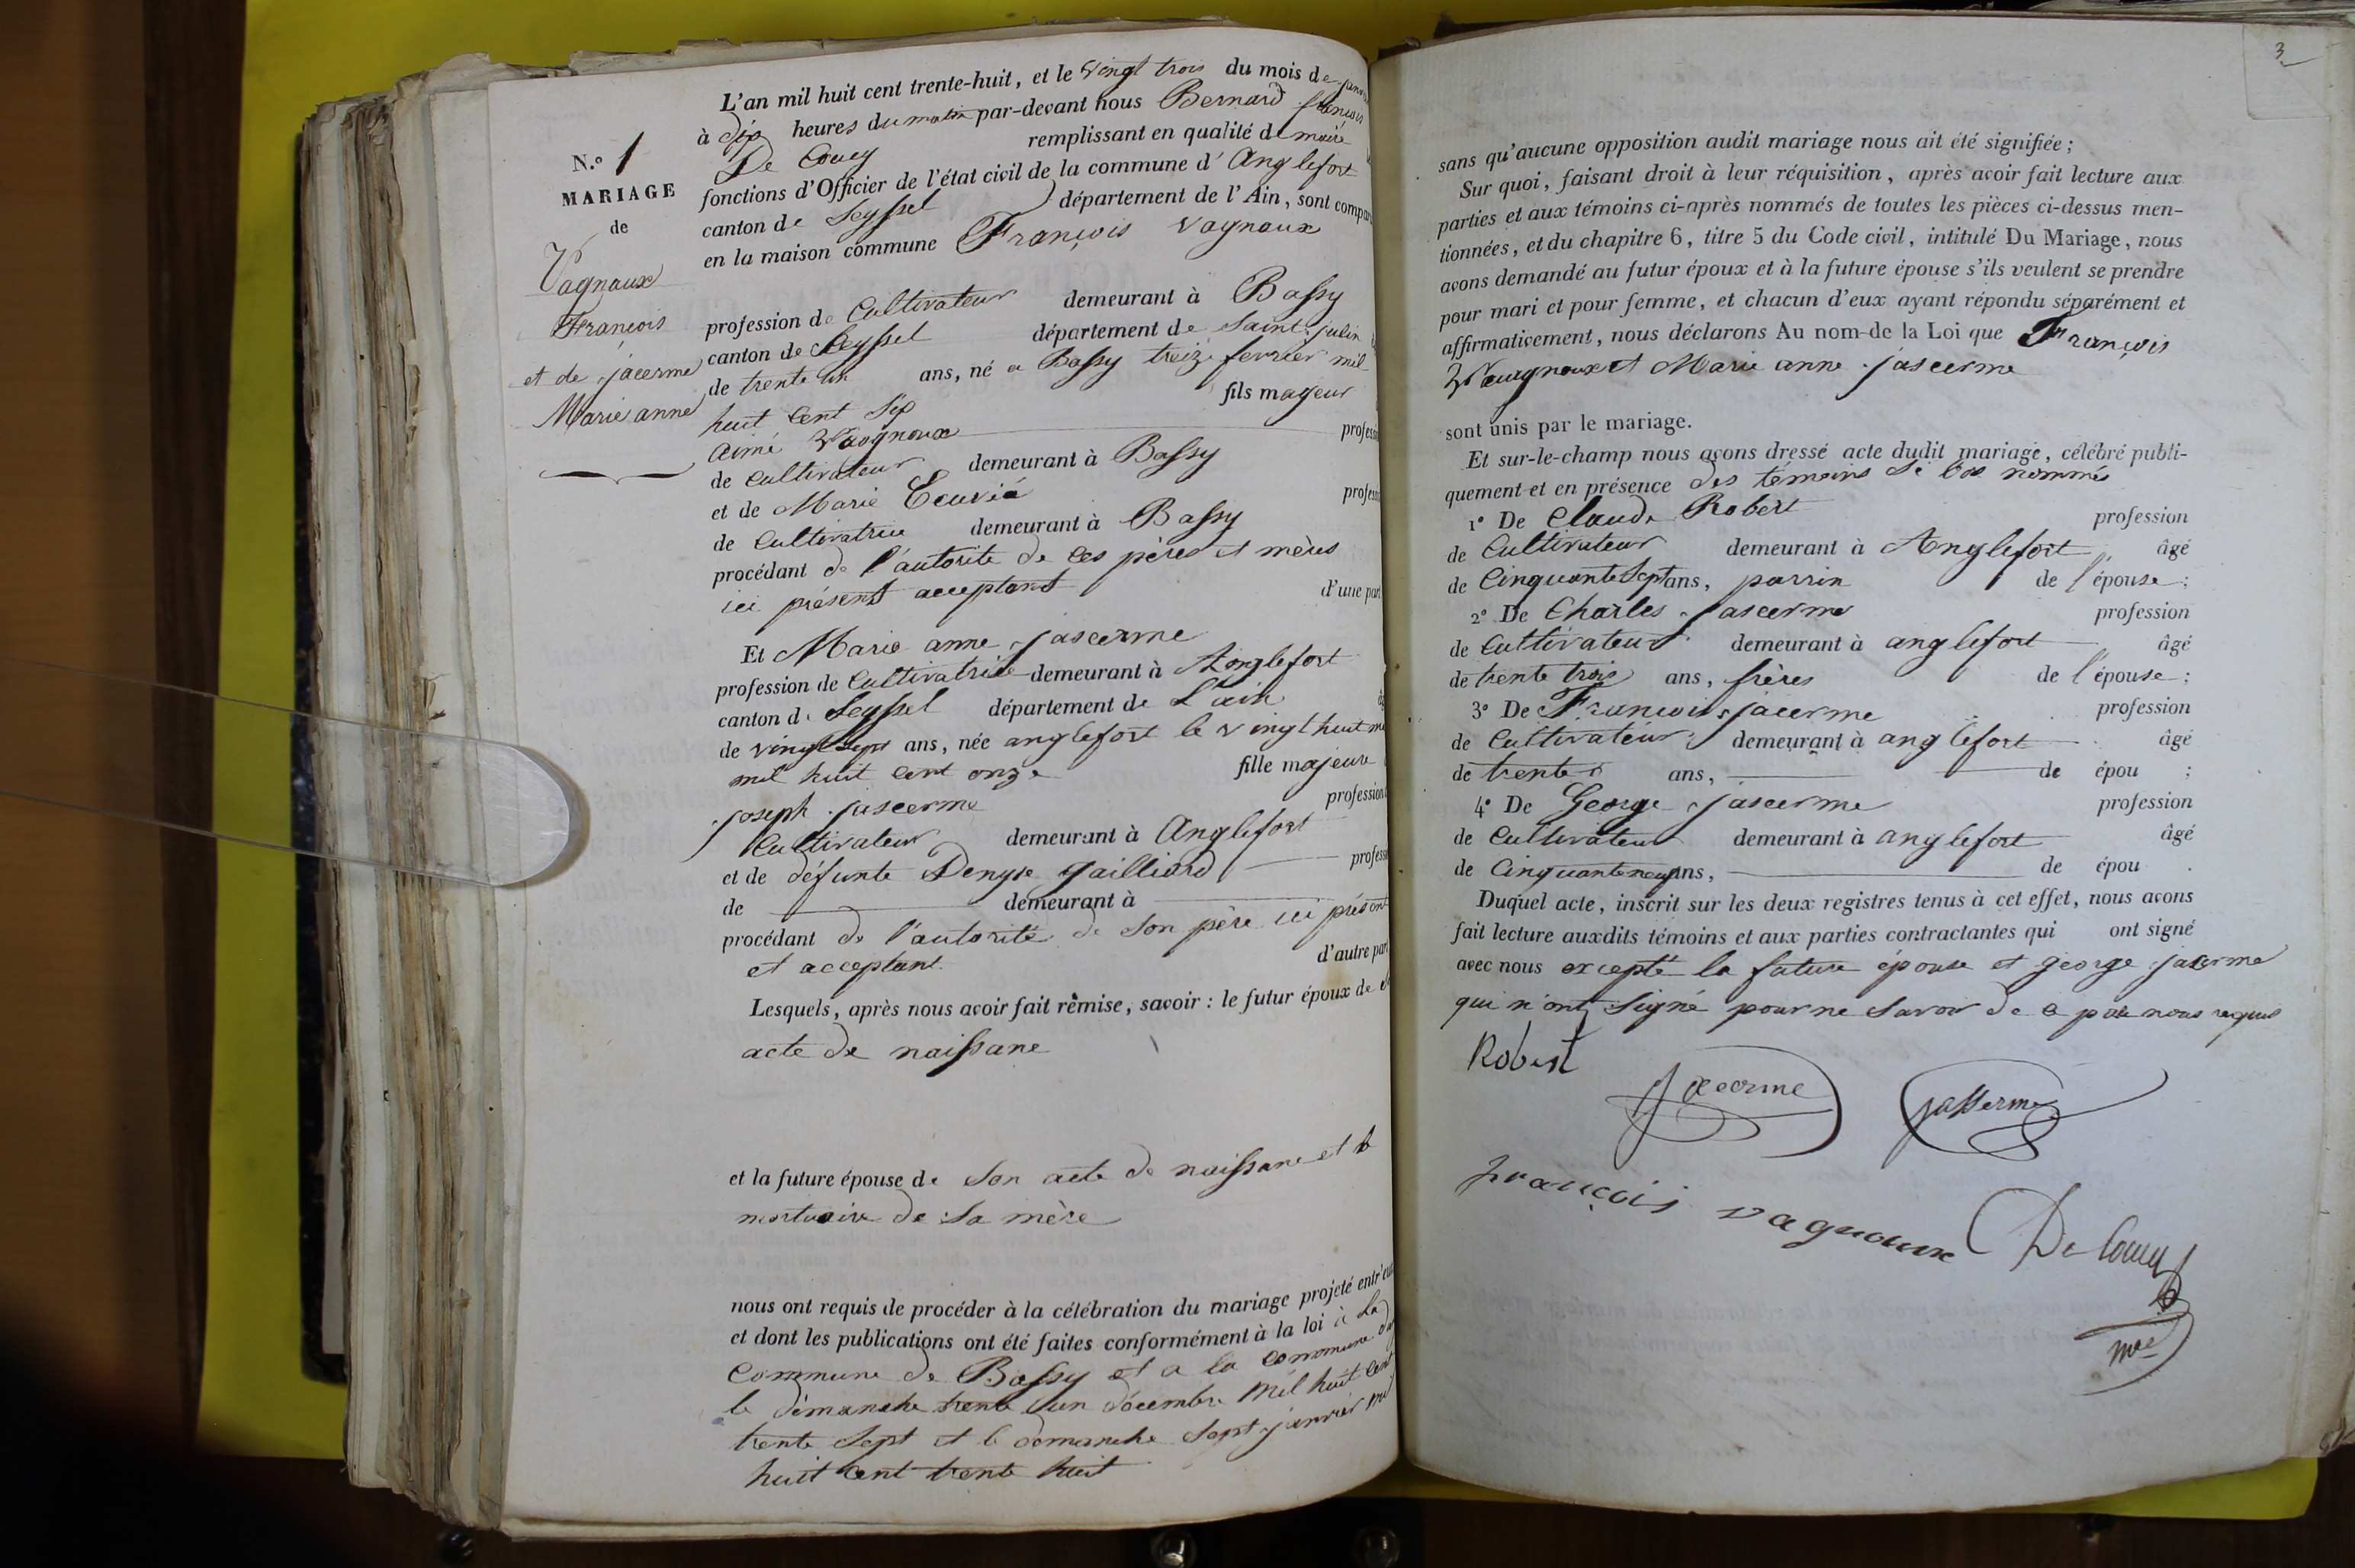 L'an mil huit cent trente-huit, et le vingt trois du mois de janv
à dix heures du matin par-devant nous Bernard françois
De Coucy remplissant en qualité de maire
fonctions d'Officier de l'état civil de la commune d' Anglefort
canton de Seyssel département de l'Ain, sont compar
en la maison commune François Vagnoux
profession de Cultivateur demeurant à Bassy
canton de Seyssel département de Saint julin
de trente un ans, né a Bassy treize fevrier mil
huit cent sep fils majeur
aimé Vuagnoux profess
de cultivateur demeurant à Bassy
et de Marie profess
de Cultivatrice demeurant à Bassy
procédant de l'autorité de ces pères et mères
ici présent acceptant d'une part
Et Marie anne jascerme
profession de Cultivatrice demeurant à Anglefort
canton de Seyssel département de L'ain
de vingt sept ans, née anglefort le vingt huit m
mil huit cent onze fille majeure
joseph jascerme profession
Cultivateur demeurant à Anglefort
et de défunte Denyse gailliard profess
de demeurant à
procédant de l'autorité de son père ici présent
et acceptant. d'autre part
Lesquels, après nous avoir fait remise, savoir : le futur époux de s
acte de naissane
et la future épouse de son acte de naissane et le
mortuaire de sa mère
nous ont requis de procéder à la célébration du mariage projeté entr'eux
et dont les publications ont été faites conformément à la loi à la
commune de Bassy et a la commune d'a
le dimanche trente un décembre mil huit cent
trente sept et le domanche sept janvier mil
huit cent trente huit
N.o 1
MARIAGE
de
Vagnoux
François
et de jacerme
Marie anne
3
sans qu'aucune opposition audit mariage nous ait été signifiée ;
Sur quoi, faisant droit à leur réquisition, après avoir fait lecture aux
parties et aux témoins ci-après nommés de toutes les pièces ci-dessus men-
tionnées, et du chapitre 6, titre 5 du Code civil, intitulé Du Mariage, nous
avons demandé au futur époux et à la future épouse s'ils veulent se prendre
pour mari et pour femme, et chacun d'eux ayant répondu séparément et
affirmativement, nous déclarons Au nom de la Loi que François
Vuagnoux et Marie anne jascerme
sont unis par le mariage.
Et sur-le-champ nous avons dressé acte dudit mariage, célébré publi-
quement et en présence des témoins si bas nommés
1° De Claude Robert profession
de Cultivateur demeurant à Anglefort âgé
de Cinquante Sept ans, parrin de l'épouse ;
2° De Charles jascerme profession
de Cultivateur demeurant à anglefort âgé
de trente trois ans, frères de l'épouse ;
3° De François jacerme profession
de Cultivateur demeurant à anglefort âgé
de trente ans, de épou ;
4° De George jascerme profession
de Cultivateur demeurant à anglefort âgé
de Cinquante neuf ans, de épou .
Duquel acte, inscrit sur les deux registres tenus à cet effet, nous avons
fait lecture auxdits témoins et aux parties contractantes qui ont signé
avec nous excepté la future épouse et george jacerme
qui n'ont signé pour ne savoir de ce par nous requis
Robert
Jacerme
jasserme
françois vagnoux
De Coucy
mre